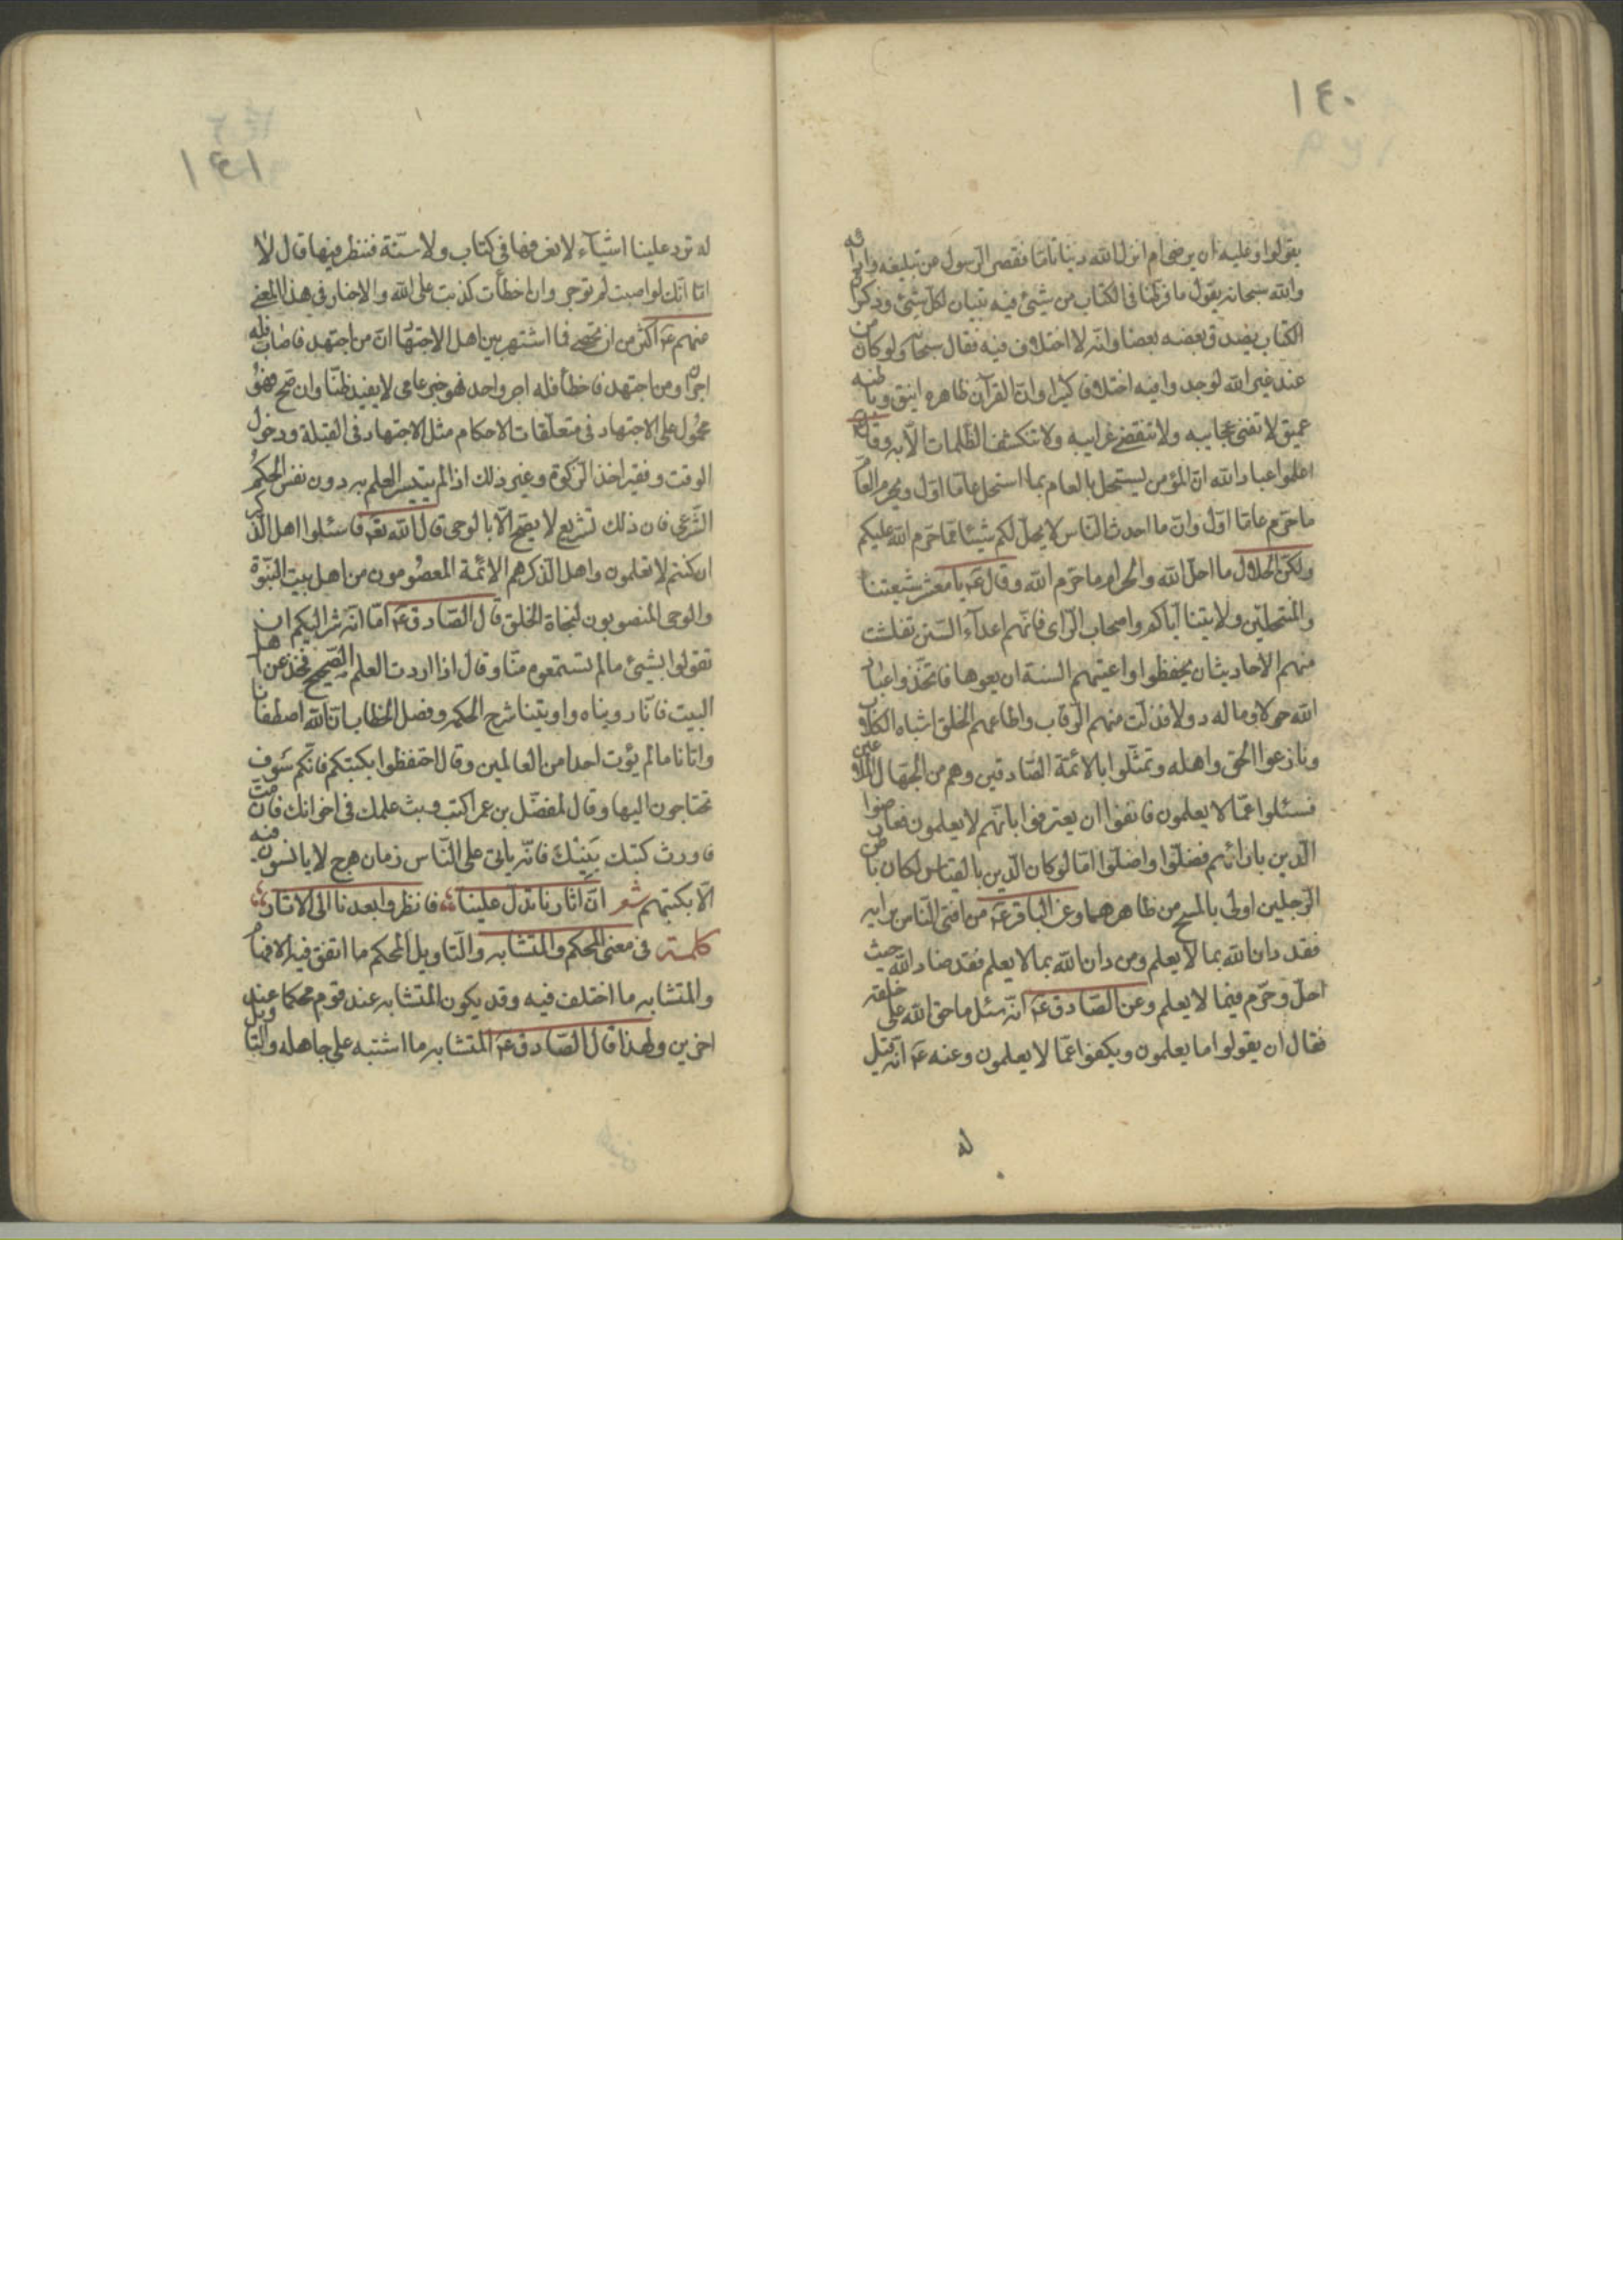 ١٤٠
يقولوا وعليه ان يرضى ام انزل الله دينا تاما فقصر الرسول عن تبليغه وادائه
والله سبحانه يقول ما فرطنا فى الكتاب من شيئ وفيه تبيان لكل شيئ وذكر ان
الكتاب يصدق بعضه بعضا وانه لا اختلاف فيه فقال سبحانه ولو كان من
عند غير الله لوجدوا فيه اختلافا كثيرا وانّ القرآن ظاهره انيق وباطنه
عميق لا تفنى عجايبه ولا تنقضى غرايبه ولا تنكشف الظلمات الّا به وقال ع
اعلموا عباد الله انّ المؤمن ليستحل بالعام بما استحل عاما اوّل ويحرم العام
ما حرّم عاما اوّل وانّ ما احدث الناس لا يحلّ لكم شيئا ممّا حرّم الله عليكم
ولكنّ الحلال ما احلّ الله والحرام ما حرّم الله وقال ع يا معشر شيعتنا
والمنتحلين ولايتنا ايّاكم واصحاب الرّاى فانّهم اعداء السّنن تفلتت
منهم الاحاديث ان يحفظوا واعيتهم السنة ان يعوها فاتخذوا عباد
الله خولا وماله دولا فذلّت منهم الرّقاب واطاعهم الخلق اشباه الكلاب
ونازعوا الحق واهله وتمثّلوا بالائمّة الصّادقين وهم من الجهّال الملاعين
فسئلوا عمّا لا يعلمون فانفوا ان يعترفوا بانّهم لا يعلمون فعارضوا
الدّين بارائهم فضلّوا واضلّوا امّا لو كان الدّين بالقياس لكان باطن
الرّجلين اولى بالمسح من ظاهرهما وعن الباقر ع من افتى النّاس برايه
فقد دان الله بما لا يعلم ومن دان الله بما لا يعلم فقد ضادّ الله حيث
احلّ وحرّم فيما لا يعلم وعن الصّادق ع انّه سئل ما حق الله على خلقه
فقال ان يقولوا ما يعلمون ويكفوا عمّا لا يعلمون وعنه ع انّه قيل
له
١٤١
له ترد علينا اشياء لا نعرفها فى كتاب ولا سنّة فننظر فيها قال لا
اما انّك لو اصبت لم توجر وان اخطأت كذبت على الله والاخبار فى هذا المعنى
عنهم ع اكثر من ان تحصى فما اشتهر بين اهل الاجتهاد انّ من اجتهد فاصاب فله
اجران ومن اجتهد فاخطأ فله اجر واحد فهو خبر عامى لا يفيد ظنّا وان صح فهو
محمول على الاجتهاد فى متعلّقات الاحكام مثل الاجتهاد فى القبلة ودخول
الوقت وفقير اخذ الزكوة وغير ذلك اذا لم يتيسر العلم به دون نفس الحكم
الشّرعى فان ذلك تشريع لا يصحّ الّا بالوحى قال الله تع فاسئلوا اهل الذكر
ان كنتم لا تعلمون واهل الذكر هم الائمّة المعصومون من اهل بيت النبّوة
والوحى المنصوبون لنجاة الخلق قال الصّادق ع امّا انّه شر عليكم ان
تقولوا بشيئ ما لم تستمعوه منّا وقال اذا اردت العلم الصّحيح فخذ عن اهل
البيت فانّا رويناه واوتينا شرح الحكم وفصل الخطاب انّ الله اصطفانا
واتانا ما لم يؤت احدا من العالمين وقال احتفظوا بكتبكم فانّكم سوف
تحتاجون اليها وقال لمفضّل بن عمر اكتب وبث علمك فى اخوانك فان مت
فاورث كتبك بَنِيْكَ فانّه ياتى على النّاس زمان هرج لا يانسون فيه
الّا بكتبهم شعر انّ اثارنا تدلّ علينا ؛؛ فانظروا بعدنا الى الاثار ؛؛
كلمة فى معنى المحكم والمتشابه والتّاويل المحكم ما اتفق فيه الافهام
والمتشابه ما اختلف فيه وقد يكون المتشابه عند قوم محكما عند
اخرين ولهذا قال الصّادق ع المتشابه ما اشتبه على جاهله والتّاويل